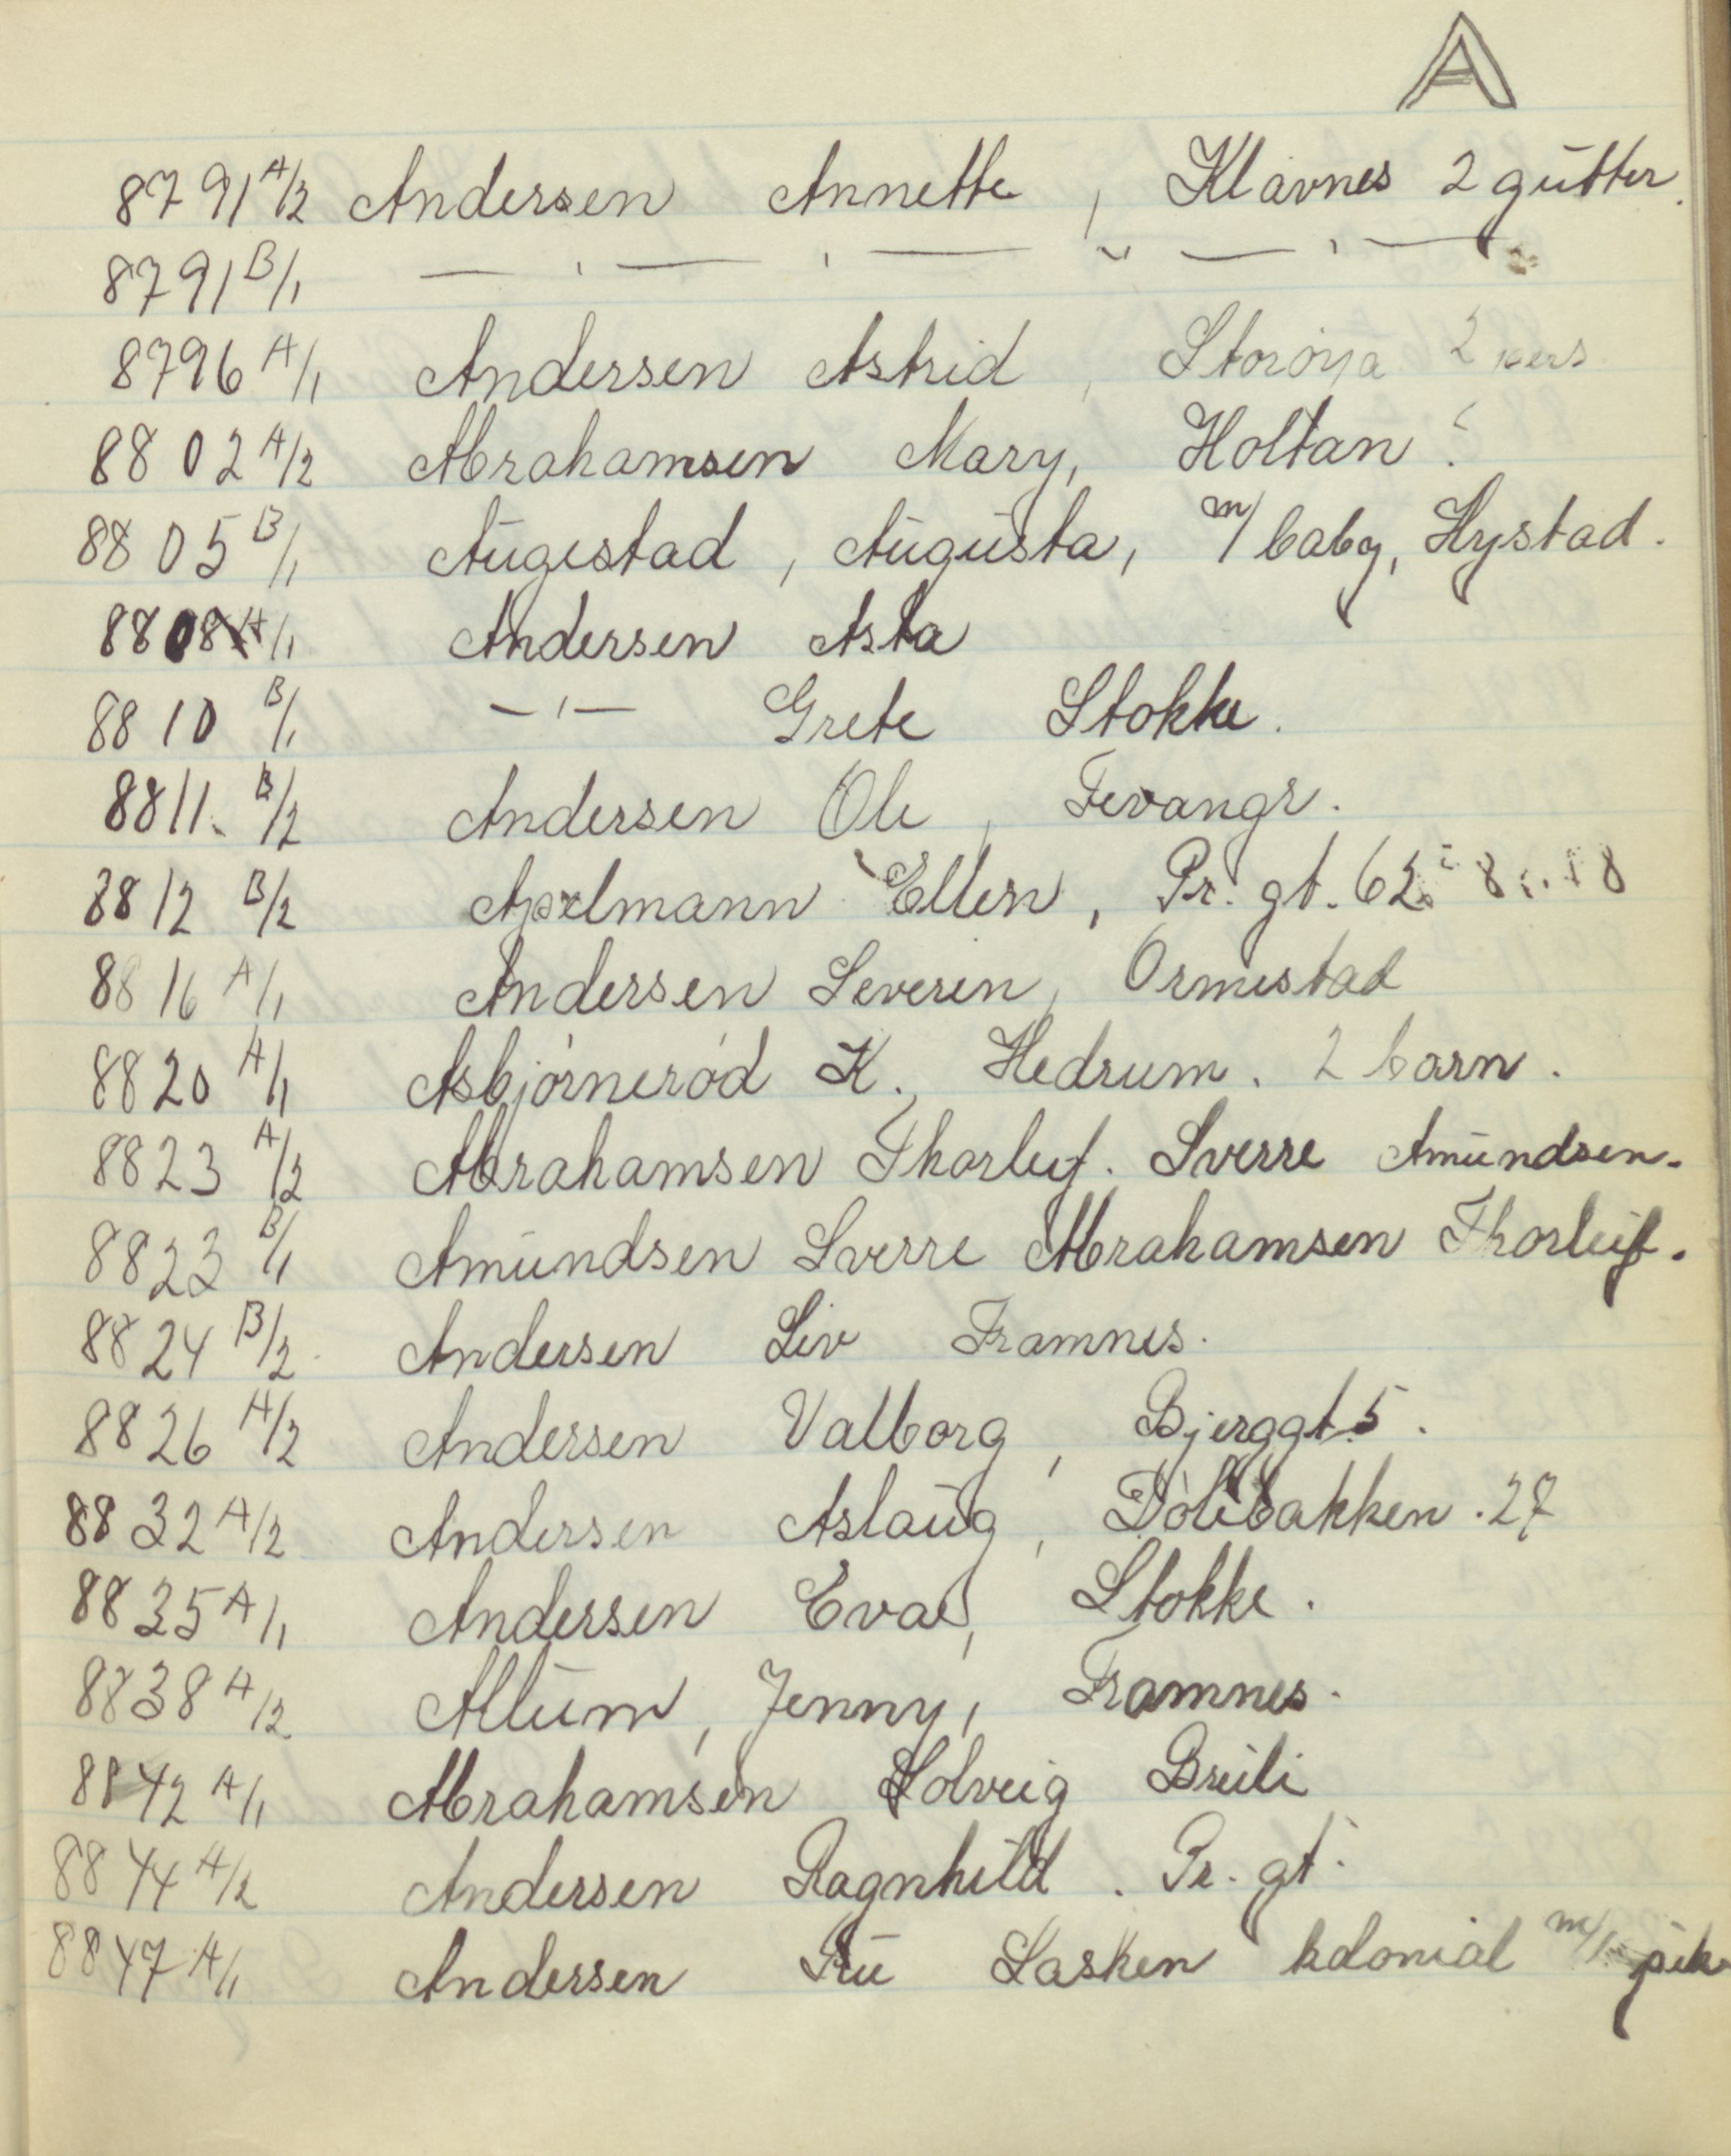 A
8791 A/2 Andersen Annette, Klavnes 2 gutter.
8791 B/1 — ' — ' — " — ' —
8796 A/1 Andersen Astrid, Storøya 2 pers
8802 A/2 Abrahamsen Mary, Holtan ?
8805 B/1 Augestad, Augusta, m/ baby, Hystad.
8808 A/1 Andersen Asta
8810 B/1 — ' — Grete Stokke.
8811. B/2 Andersen Ole, Fevangr.
8812 B/2 Ellen, Pr. gt. 62
8816 A/1 Andersen Severin, Ormestad
8820 A/1 Asbjórneród K., Hedrum. 2 barn.
8823 A/2 Abrahamsen Thorleif. Sverre Amundsen.
8823 B/1 Amundsen Sverre Abrahamsen Thorleif.
8824 B/2 Andersen Liv Framnes.
8826 A/2 Andersen Valborg, Bjerggt. 5.
8832 A/2 Andersen Aslaug, Dólebakken. 27
8835 A/1 Andersen Eva, Stokke.
8838 A/2 Allum, Jenny, Framnes.
8842 A/1 Abrahamsen Solveig Breili
8844 A/2 Andersen Ragnhild. Pr. gt.
8847 A/1 Andersen Lasken kolonial m/ pik